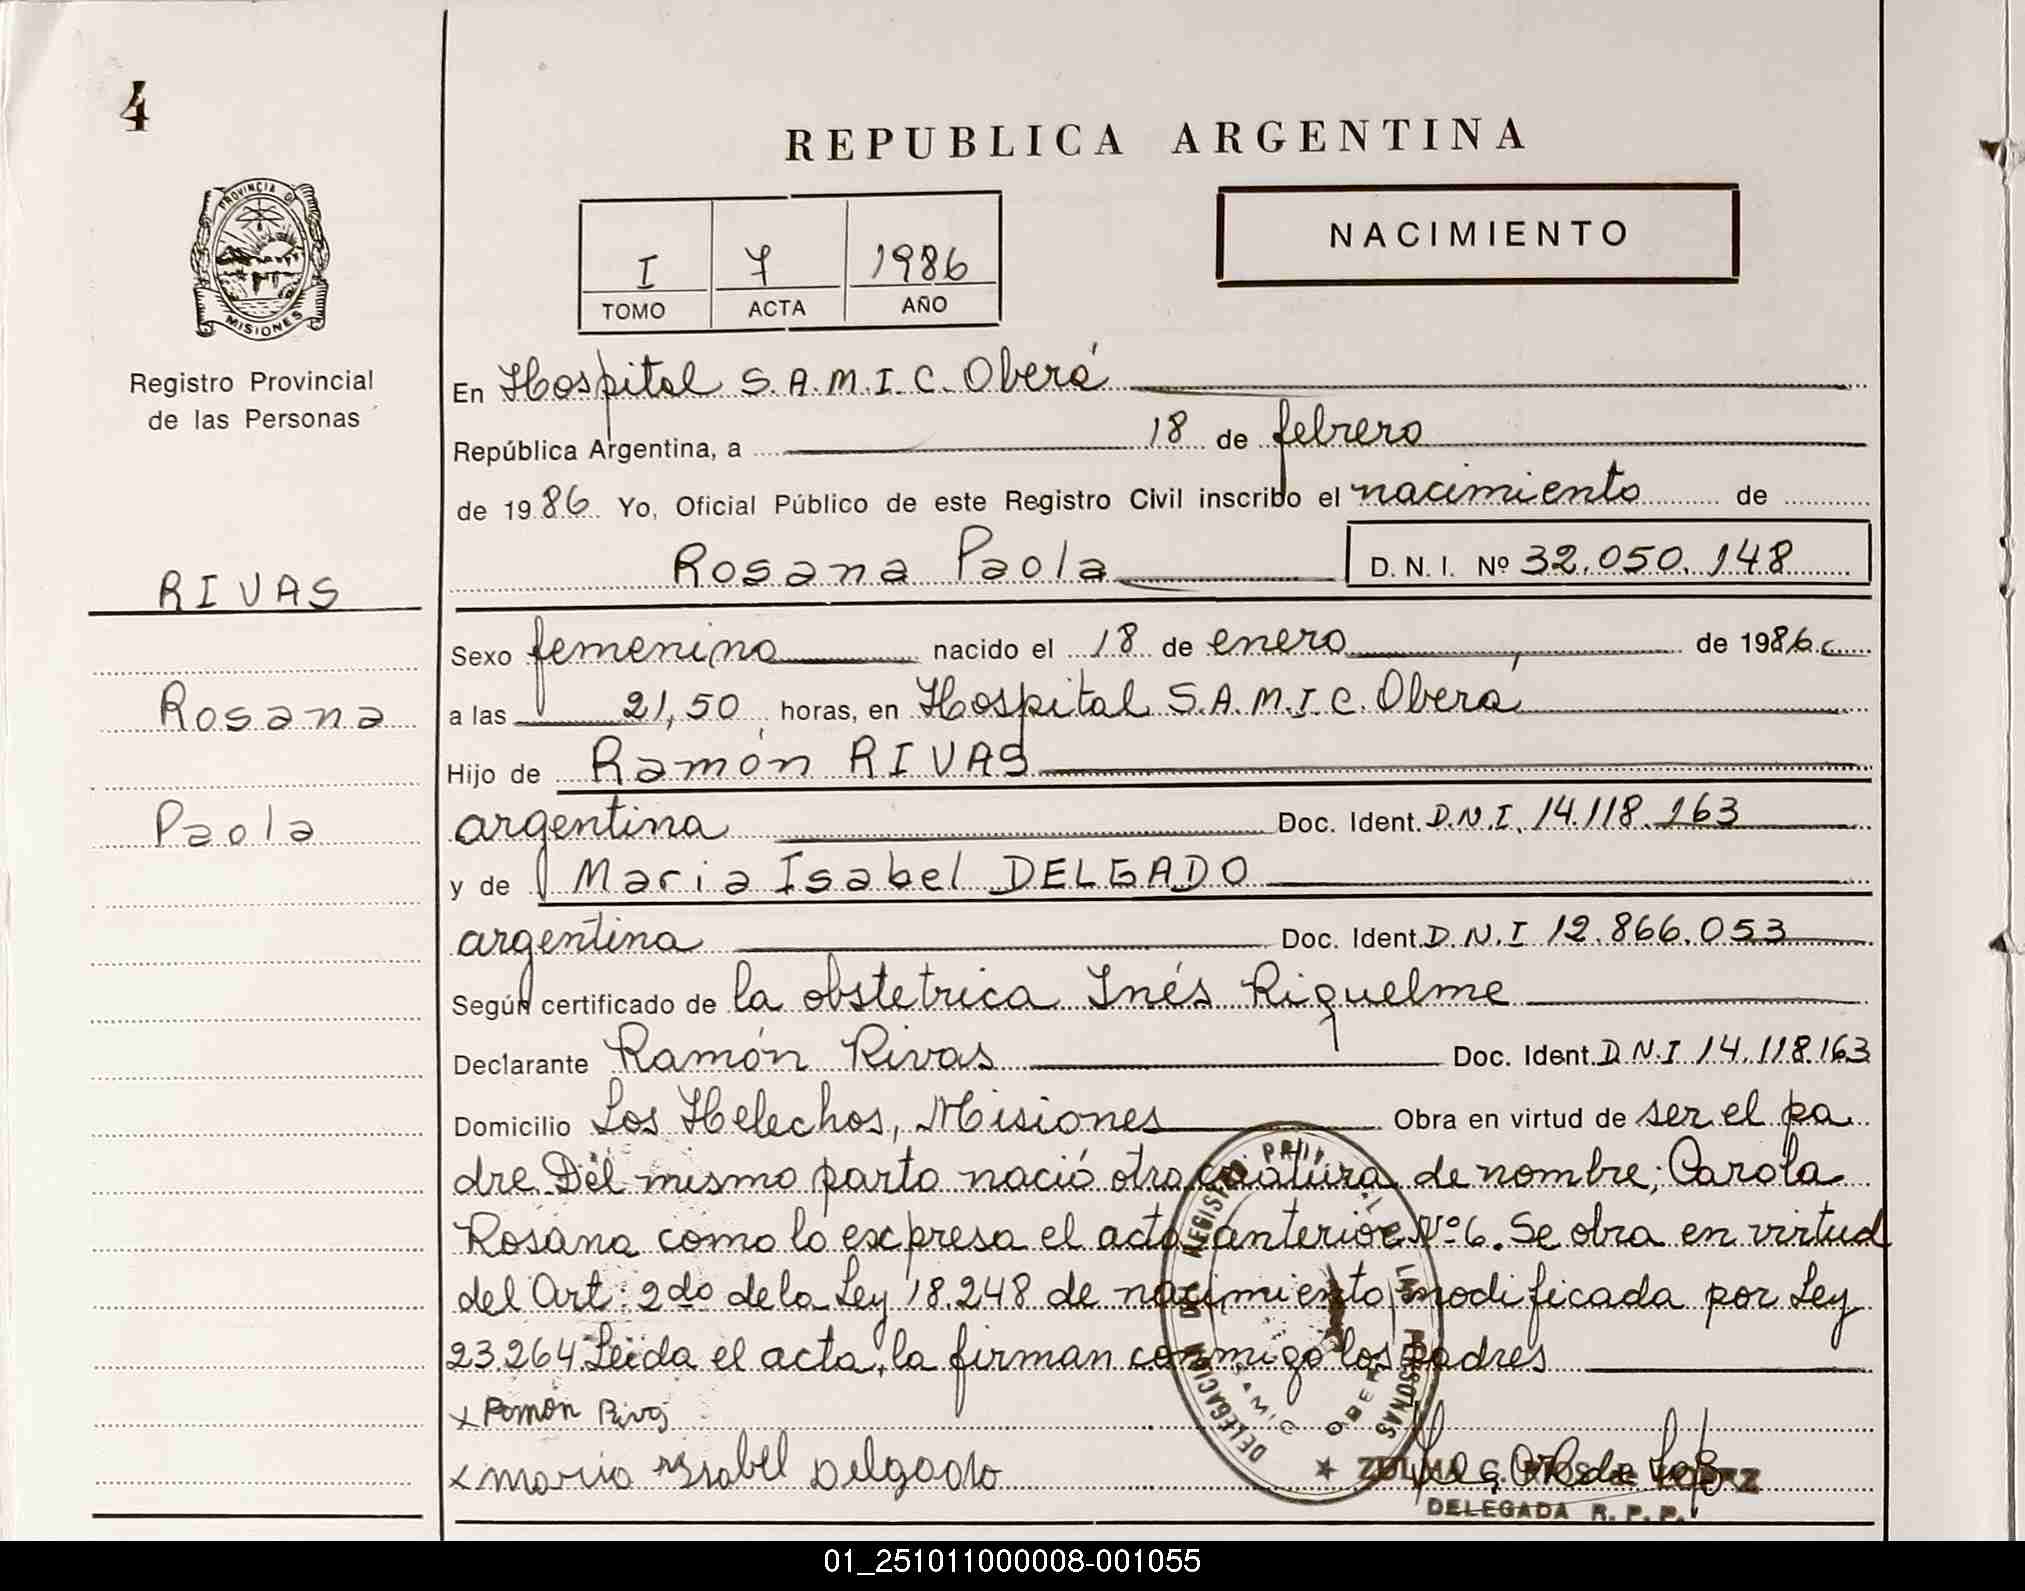 4
REPUBLICA ARGENTINA
NACIMIENTO
I 7 1986
TOMO ACTA AÑO
PROVINCIA DE
MISIONES
Registro Provincial
de las Personas
RIVAS
Rosana
Paola
En Hospital S.A.M.I.C. Oberá
República Argentina, a 18 de febrero
de 1986 Yo, Oficial Público de este Registro Civil inscribo el nacimiento de
Rosana Paola D.N.I. Nº 32.050.148
Sexo femenino nacido el 18 de enero de 1986
a las 21,50 horas, en Hospital S.A.M.I.C. Oberá
Hijo de Ramón RIVAS
argentina Doc. Ident. D.N.I. 14.118.163
y de Maria Isabel DELGADO
argentina Doc. Ident. D.N.I 12.866.053
Según certificado de la obstetrica Inés Riquelme
Declarante Ramón Rivas Doc. Ident. D.N.I 14.118.163
Domicilio Los Helechos, Misiones Obra en virtud de ser el pa
dre. Del mismo parto nació otra criatura de nombre; Carola
Rosana como lo expresa el acta anterior Nº 6. Se obra en virtud
del Art: 2do de la Ley 18.248 de nacimiento modificada por Ley
23.264 Leida el acta, la firman conmigo los padres
x Ramón Rivas
x maria Isabel Delgado
DELEGACION DEL REGISTRO LAS PERSONAS
SAMIC OBERA
DELEGADA R.P.P.
01_251011000008-001055